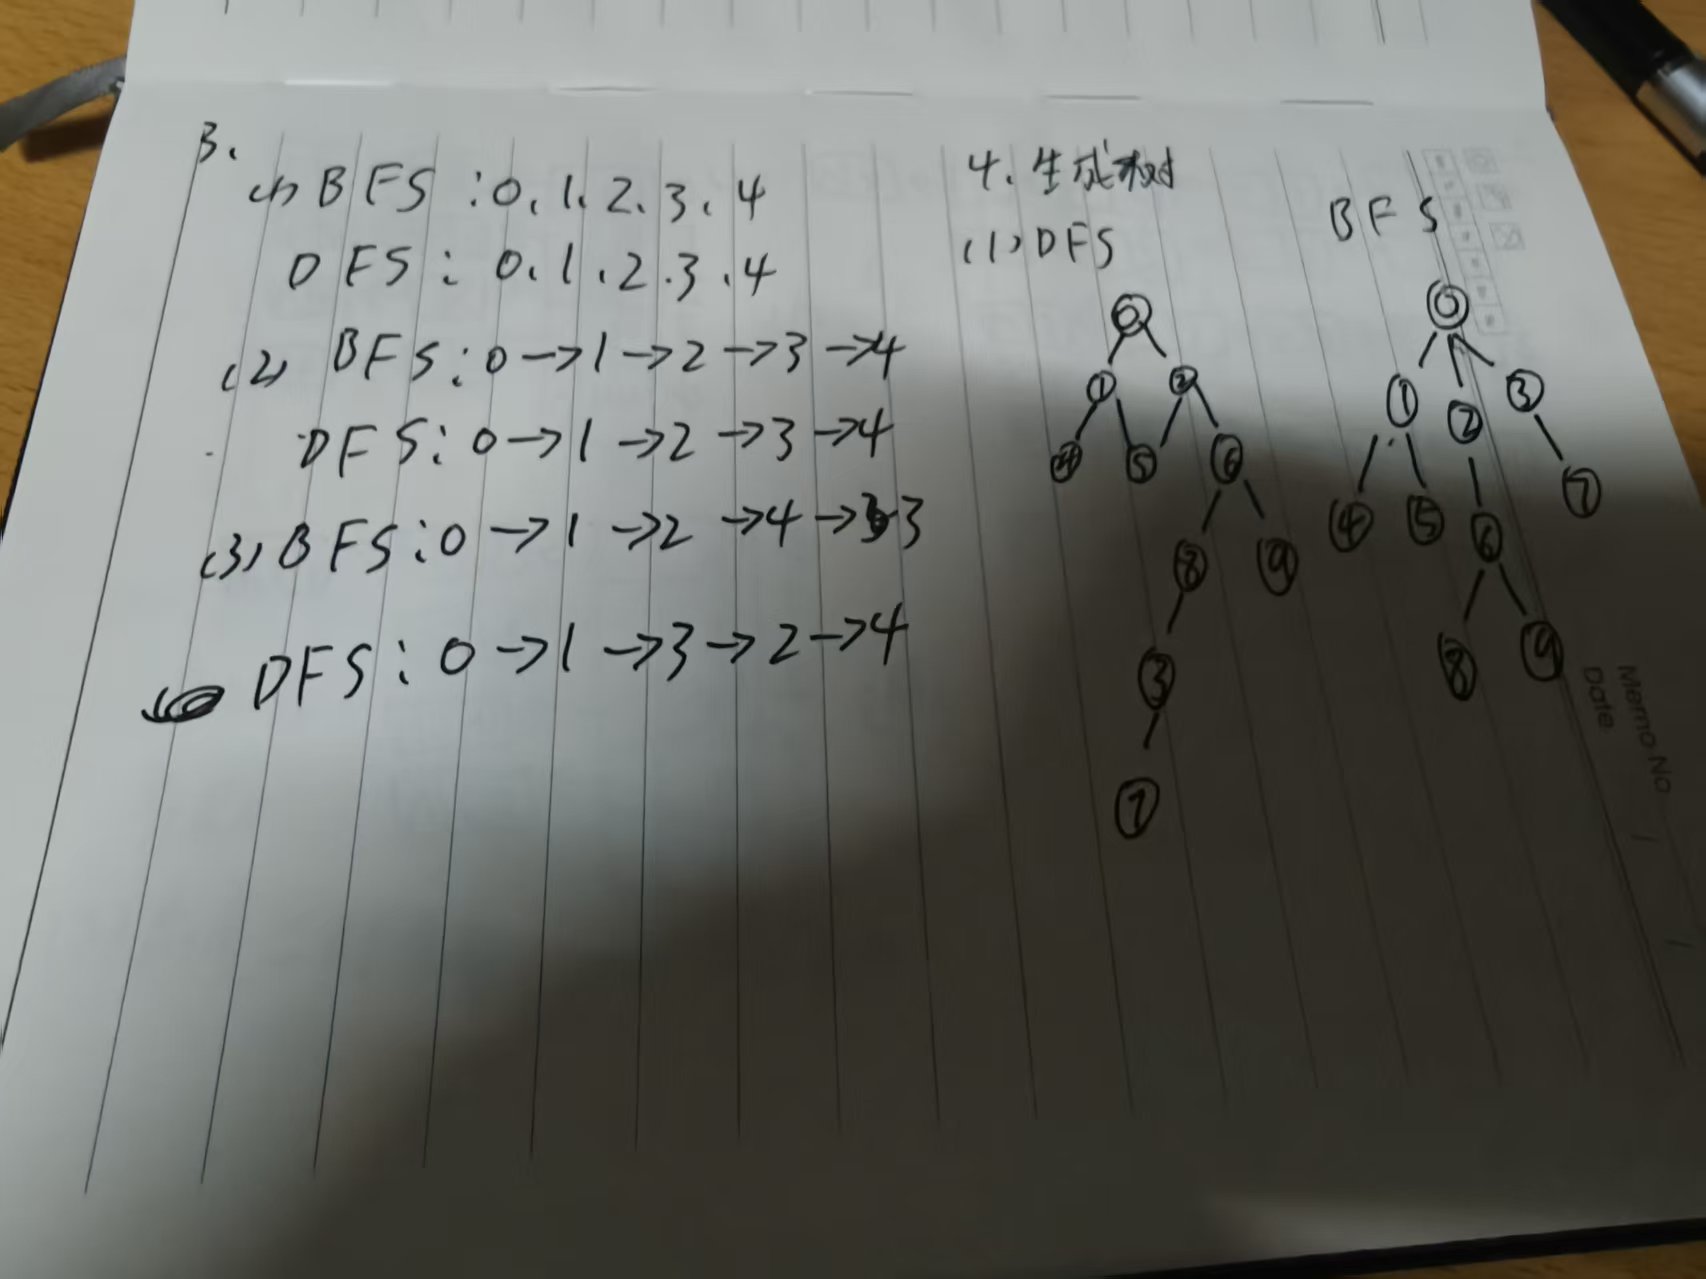 3.
(1) BFS: 0. 1. 2. 3. 4
DFS: 0. 1. 2. 3. 4
(2) BFS: 0→1→2→3→4
DFS: 0→1→2→3→4
(3) BFS: 0→1→2→4→3
DFS: 0→1→3→2→4
4. 生成树
(1) DFS
0
1 2
4 5 6
8 9
3
7
BFS
0
1 2 3
4 5 6 7
8 9
Memo No
Date